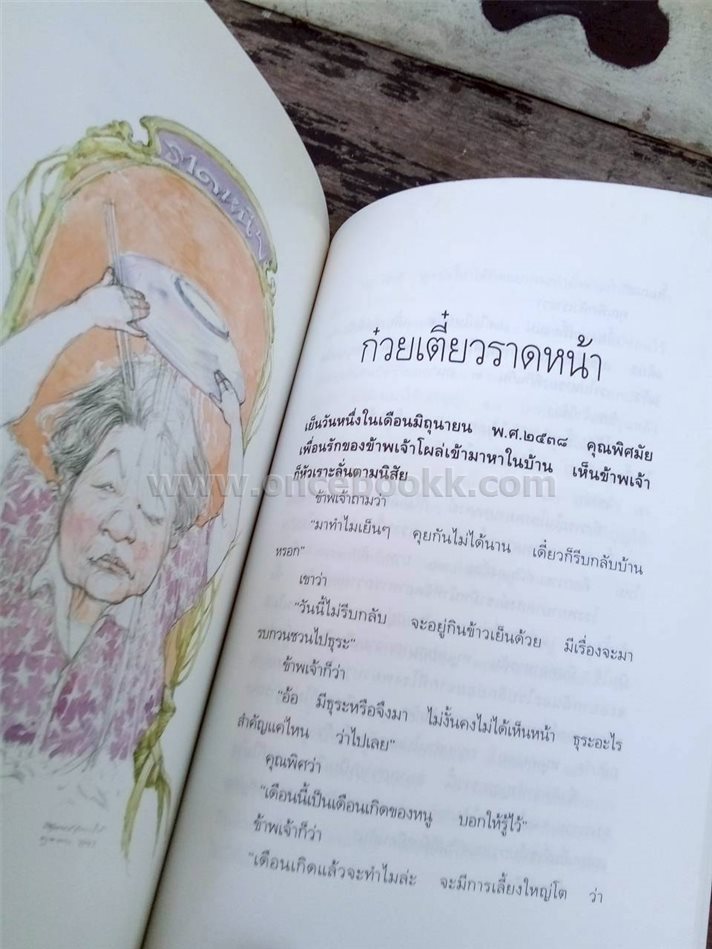 ก๋วยเตี๋ยวราดหน้า
เย็นวันหนึ่งในเดือนมิถุนายน พ.ศ.๒๕๓๘ คุณพิศมัย
เพื่อนรักของข้าพเจ้าโผล่เข้ามาหาในบ้าน เห็นข้าพเจ้า
ก็หัวเราะลั่นตามนิสัย
www.oncebookk.com
ข้าพเจ้าถามว่า
"มาทำไมเย็นๆ คุยกันไม่ได้นาน เดี๋ยวก็รีบกลับบ้าน
หรอก"
เขาว่า
"วันนี้ไม่รีบกลับ จะอยู่กินข้าวเย็นด้วย มีเรื่องจะมา
รบกวนชวนไปธุระ"
ข้าพเจ้าก็ว่า
"อ้อ มีธุระหรือจึงมา ไม่งั้นคงไม่ได้เห็นหน้า ธุระอะไร
สำคัญแค่ไหน ว่าไปเลย"
คุณพิศว่า
"เดือนนี้เป็นเดือนเกิดของหนู บอกให้รู้ไว้"
ข้าพเจ้าก็ว่า
"เดือนเกิดแล้วจะทำไมล่ะ จะมีการเลี้ยงใหญ่โต ว่า